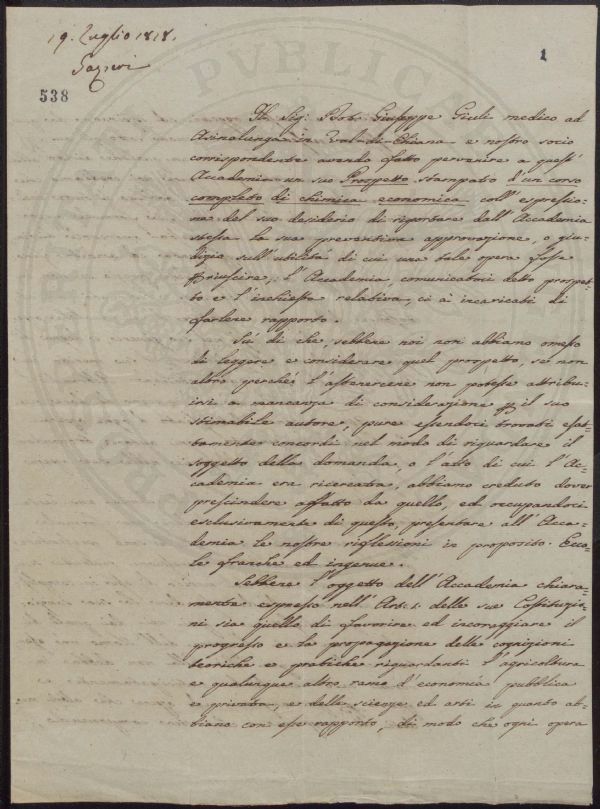 19. Luglio 1818.
Gazzeri
1
538
Il Sig. Dott. Giuseppe Giuli medico ad
Asinalunga in Val-di-Chiana e nostro socio
corrispondente avendo fatto pervenire a quest'
Accademia un suo Prospetto stampato d'un corso
completo di chimica economica coll'espressio=
ne del suo desiderio di riportare dell'Accademia
stessa la sua preventiva approvazione, o giu=
dizio sull'utilità di cui una tale opera fosse
p riuscire, l'Accademia comunicatoci detto prospet=
to e l'inchiesta relativa, ci à incaricati di
farlene rapporto.
Sù di che, sebbene noi non abbiamo omesso
di leggere e considerare quel prospetto, se non
altro perchè l'astenercene non potesse attribu=
irsi a mancanza di considerazione p il suo
stimabile autore, pure essendoci trovati esat=
tamente concordi nel modo di riguardare il
soggetto della domanda, o l'atto di cui l'Ac=
cademia era ricercata, abbiamo creduto dover
prescindere affatto da quello, ed occupandoci
esclusivamente di questo, presentare all'Acca=
demia le nostre riflessioni in proposito. Ecco=
le franche ed ingenue.
Sebbene l'oggetto dell'Accademia chiara=
mente espresso nell'Art. 1. delle sue Costituzio=
ni sia quello di favorire ed incoraggiare il
progresso e la propagazione delle cognizioni
teoriche e pratiche riguardanti l'agricoltura
e qualunque altro ramo d'economia pubblica
e privata, e delle scienze ed arti in quanto ab=
biano con esse rapporto, di modo che ogni opera